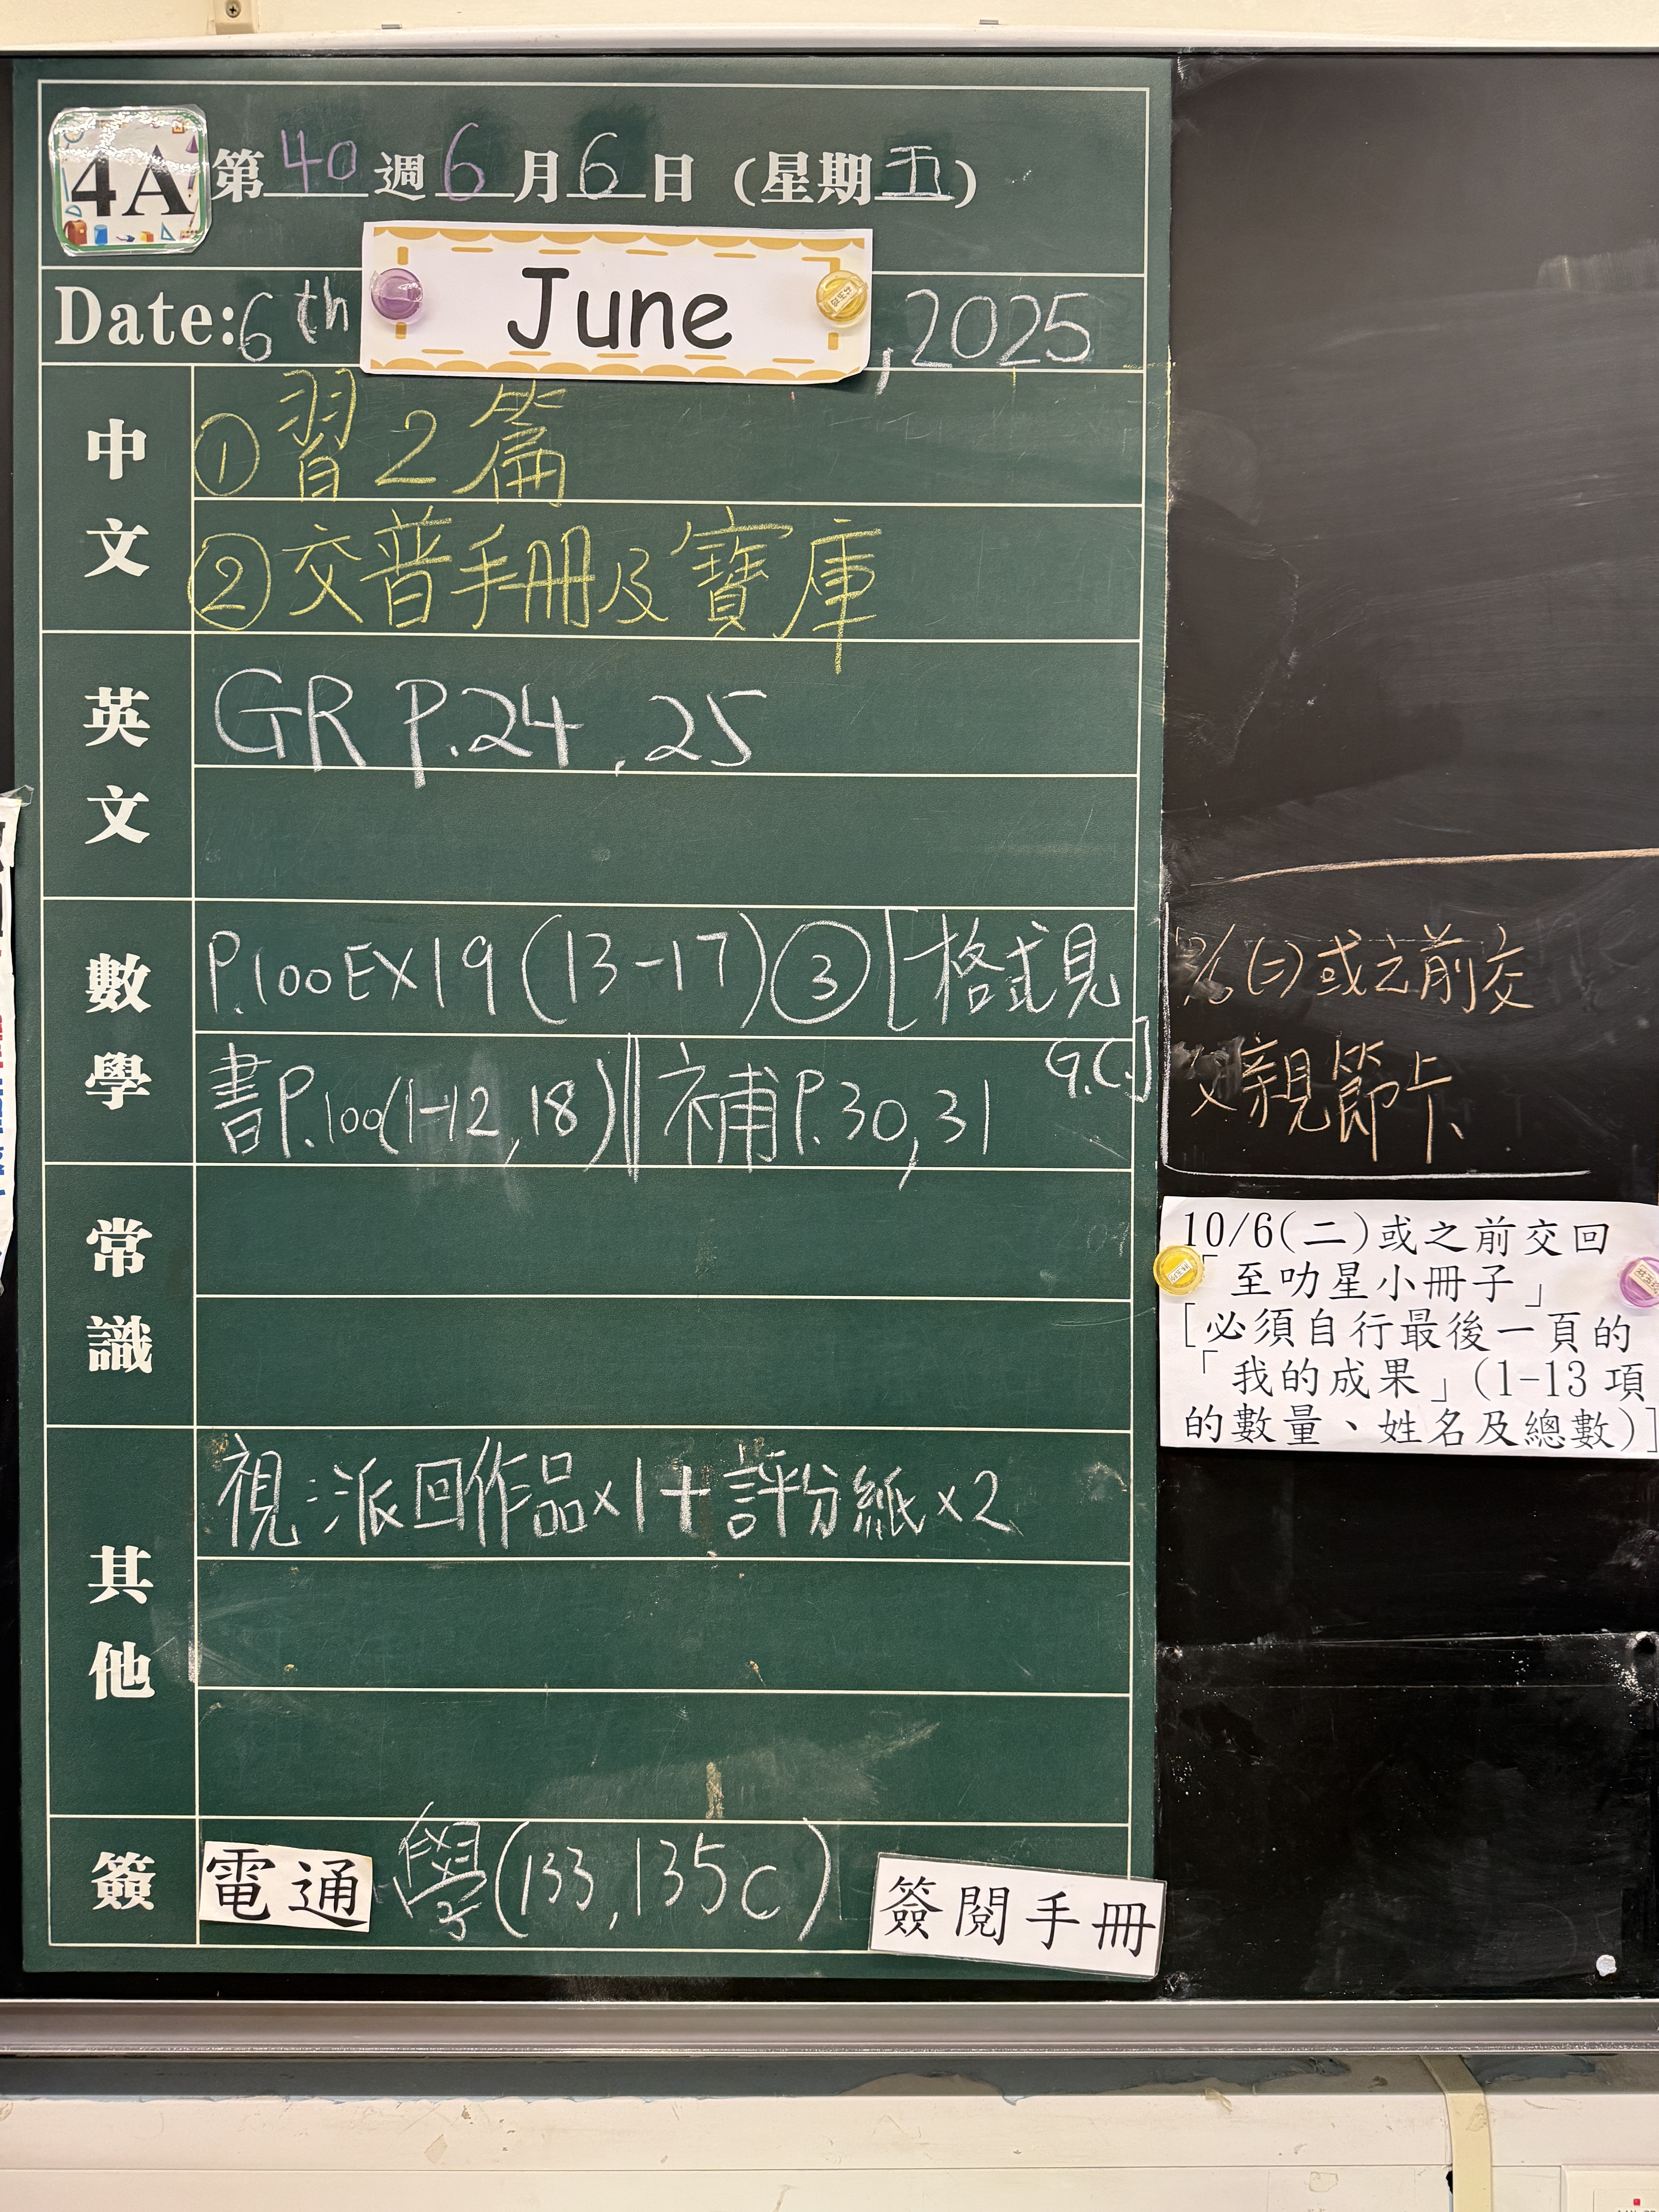 4A 第40週6月6日(星期五)
Date: 6th June, 2025
中文
①習2篇
②交普手冊及寶庫
英文
GR P.24, 25
數學
P.100 EX19 (13-17) ③ [格式見
G.C.]
書P.100(1-12, 18) || 補P.30, 31
常識
其他
視:派回作品x1+評分紙x2
簽
電通 學(133, 135c) 簽閱手冊
(二)或之前交
父親節卡
10/6(二)或之前交回
「至叻星小冊子」
[必須自行最後一頁的
「我的成果」(1-13項
的數量、姓名及總數)]